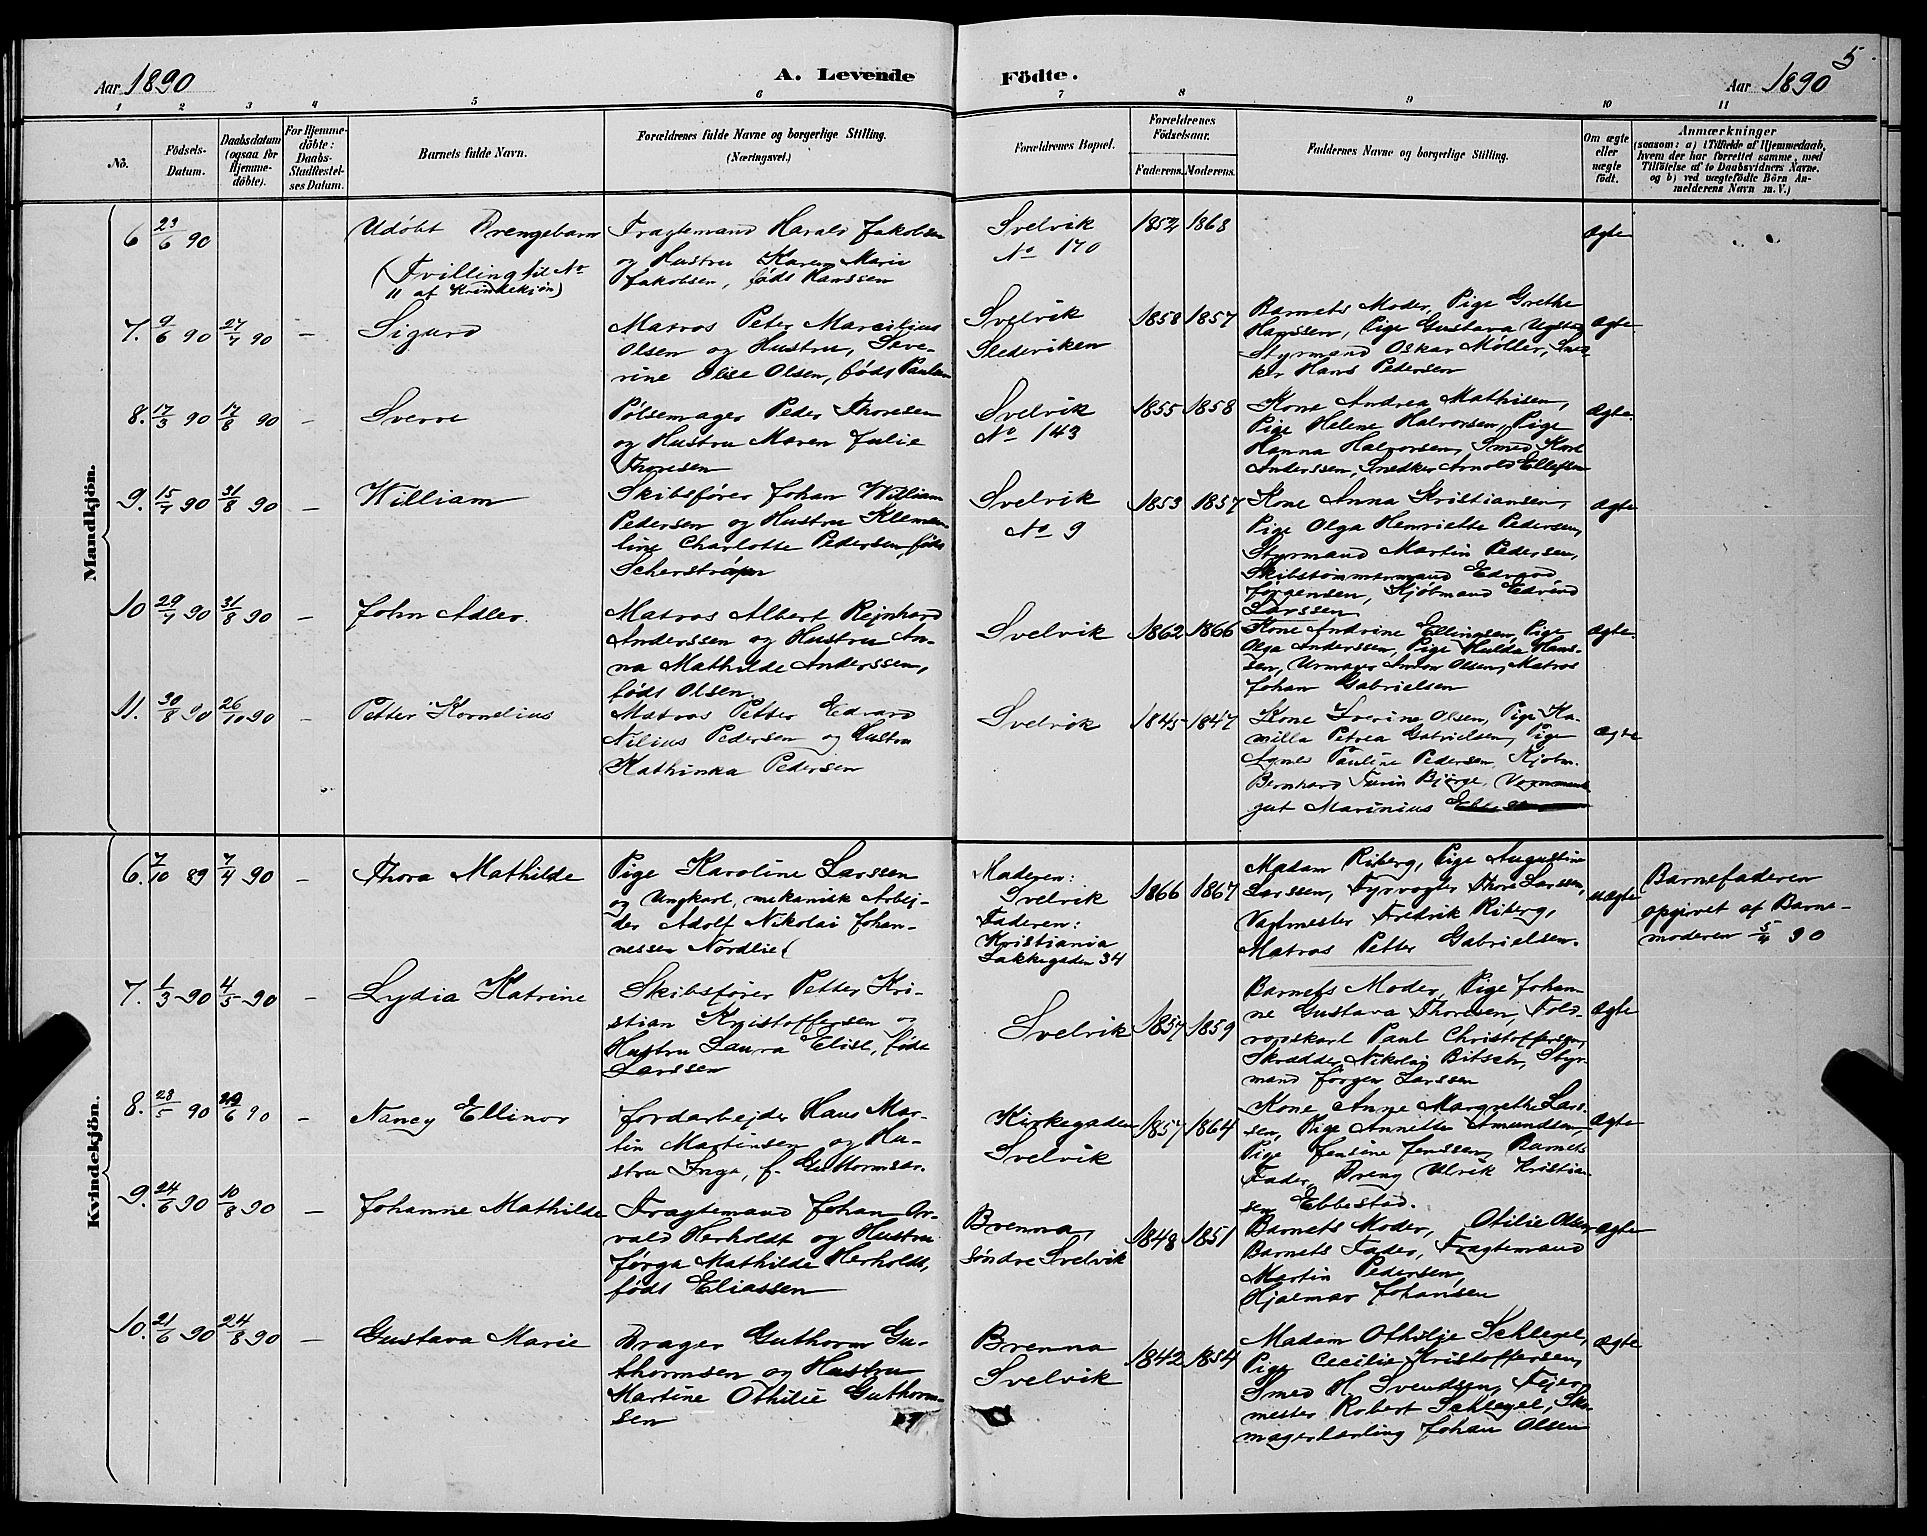 Aar 1890
A. Levende
Födte.
Aar 1890
5
1 2 3 4 5 6 7 8 9 10 11
No.
Födsels-
Datum.
Daabsdatum
(ogsaa for
Hjemme-
döbte).
For Hjemme-
döbte:
Daabs-
Stadfæstel-
ses Datum.
Barnets fulde Navn.
Forældrenes fulde Navne og borgerlige Stilling.
(Næringsvei.)
Forældrenes Bopæl.
Forældrenes
Födselsaar.
Faderens. Moderens.
Faddernes Navne og borgerlige Stilling.
Om ægte
eller
uægte
födt.
Anmærkninger
(saasom: a) i Tilfælde af Hjemmedaab,
hvem der har forrettet samme, med
Tilföielse af to Daabsvidners Navne.
og b) ved uægtefödte Börn An-
melderens Navn m. V.)
Mandkjön.
6 23/6 90
Udöbt Drengebarn
(Tvilling til No
11 af Kvindekjön)
Fragtemand Harald Jakobsen
og Hustru Karen Marie
Jakobsen, födt Hanssen
Svelvik
No 170
1852 1868
ægte
7. 9/6 90 27/7 90 –
Sigurd
Matros Peter Marcilius
Olsen og Hustru, Seve-
rine Olse Olsen, födt Paulsen
Svelvik
Slederiken
1858 1857
Barnets Moder, Pige Grethe
Hanssen, Pige Gustava
Styrmand Oskar Møller, Sned-
ker Hans Pedersen
ægte
8. 17/3 90 17/8 90 –
Sverre
Pölsemager Peder Thoresen
og Hustru Maren Julie
Thoresen
Svelvik
No 143
1855 1858
Kone Andrea Mathisen,
Pige Helene Halvorsen, Pige
Hanna Halvorsen, Smed Karl
Anderssen, Snedker Arnold Ellefsen
ægte
9. 15/7 90 31/8 90 –
William
Skibsförer Johan William
Pedersen og Hustru Klemen-
tine Charlotte Pedersen, födt
Scherström
Svelvik
No 9
1853 1857
Kone Anna Kristiansen,
Pige Olga Henriette Pedersen,
Styrmand Martin Pedersen,
Skibstömmermand Edvard
Jørgensen, Kjöbmand Edvind
Larssen
ægte
10 29/7 90 31/8 90 –
John Adler.
Matros Albert Rejnhard
Anderssen og Hustru An-
na Mathilde Anderssen,
födt Olsen.
Svelvik
1862 1866
Kone Andrine Ellingsen, Pige
Olga Anderssen, Pige Hulda Hans-
sen, Urmager Anton Olsen, Matros
Johan Gabrielsen
ægte.
11. 30/8 90 26/10 90 –
Petter Kornelius
Matros Petter Edvard
Nilius Pedersen og Hustru
Kathinka Pedersen
Svelvik
1845 1847
Kone Iverine Olsen, Pige Ka-
milla Petrea Gabrielsen, Pige
Agnes Pauline Pedersen, Kjöbm.
Bernhard Bjørge,
gut Marinius
ægte
Kvindekjön.
6. 7/10 89 7/4 90 –
Thora Mathilde
Pige Karoline Larssen
og Ungkarl, mekanisk Arbej-
der Adolf Nikolai Johan-
nessen Nordlie
Moderen:
Svelvik
Faderen:
Kristiania
Lakkegaden 34
1866 1867
Madam Riberg, Pige Augustine
Larssen, Fyrvogter Thore Larssen,
Vagtmester Fredrik Riberg,
Matros Petter Gabrielsen.
uægte
Barnefaderen
opgivet af Barne-
moderen 5/4 90
7. 1/3 -90 4/5 -90 –
Lydia Katrine
Skibsförer Petter Kri-
stian Kristoffersen og
Hustru Laura Elise, födt
Larssen
Svelvik
1857 1859
Barnets Moder, Pige Johan-
ne Gustava Thoresen, Told-
roerskarl Paul Christoffersen,
Skrædder Nikolaj Bitsch, Styr-
mand Jørgen Larssen
ægte
8. 23/5 90 29/6 90 –
Nancy Ellinor
Jordarbejder Hans Mar-
tin Martinsen og Hu-
stru Inga, f. Guttormsen.
Kirkegaden
Svelvik
1857 1864
Kone Anne Margrethe Lars-
sen, Pige Annette Amundsen,
Pige Jensine Jenssen, Barnets
Fader, Dreng Ulrik Kristian-
sen Ebbestad.
ægte
9. 24/6 90 10/8 90 –
Johanne Mathilde
Fragtemand Johan Or-
vald Herholdt og Hustru
Jørga Mathilde Herholdt,
födt Eliassen
Brenna,
söndre Svelvik
1848 1851
Barnets Moder, Otilie Olsen
Barnets Fader, Fragtemand
Martin Pedersen,
Hjalmar Johansen
ægte
10. 21/6 90 24/8 90 –
Gustava Marie
Drager Guthorm Gu-
thormsen og Hustru
Martine Othilie Guthorm-
sen
Brenna
Svelvik
1842 1854
Madam Othilje Schlegel,
Pige Cecilie Kristoffersen,
Smed H. Svendsen, Fejer-
mester Robert Schlegel, Sko-
magerlærling Johan Olsen
ægte